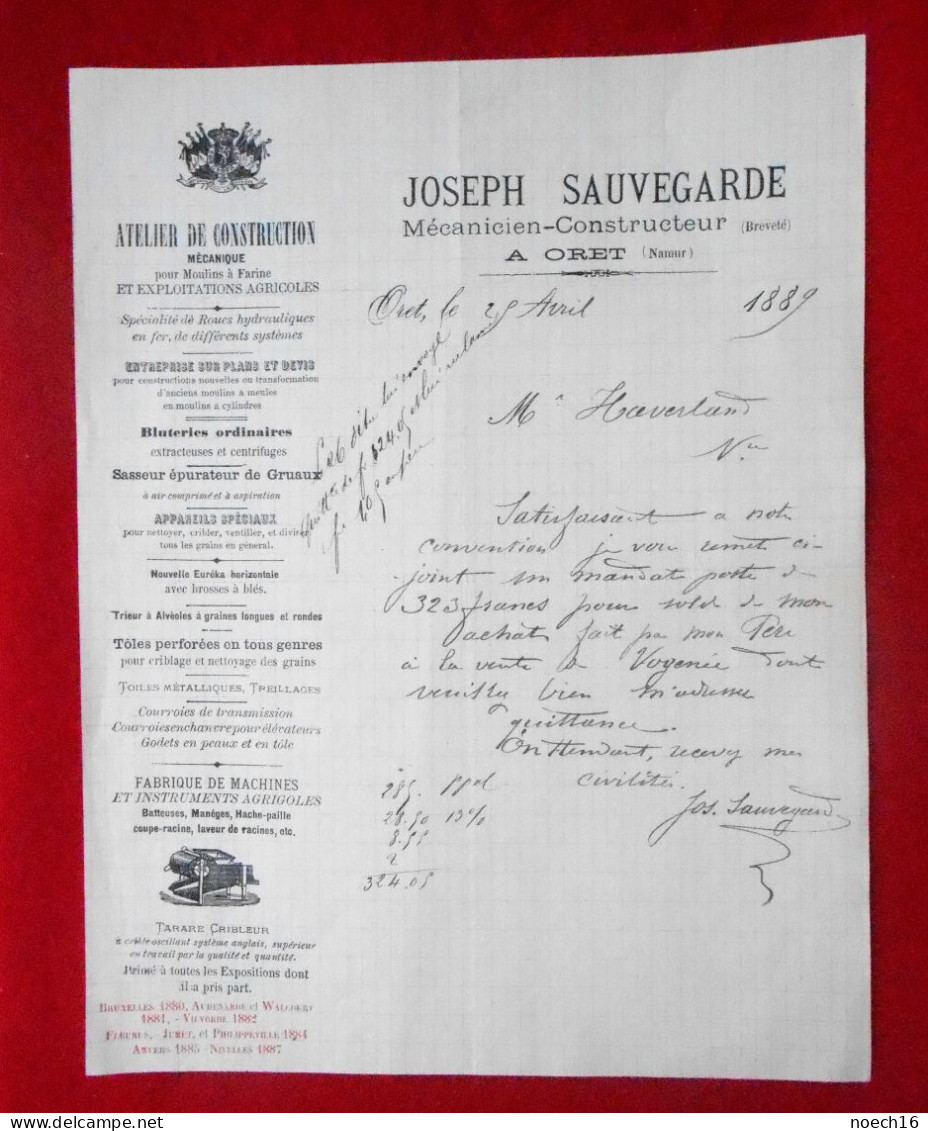 ATELIER DE CONSTRUCTION
MÉCANIQUE
pour Moulins à Farine
ET EXPLOITATIONS AGRICOLES
Spécialité de Roues hydrauliques
en fer, de différents systèmes
ENTREPRISE SUR PLANS ET DEVIS
pour constructions nouvelles ou transformation
d'anciens moulins a meules
en moulins a cylindres
Bluteries ordinaires
extracteuses et centrifuges
Sasseur épurateur de Gruaux
à air comprimé et à aspiration
APPAREILS SPÉCIAUX
pour nettoyer, cribler, ventiller, et diviser
tous les grains en général.
Nouvelle Euréka horizontale
avec brosses à blés.
Trieur à Alvéoles à graines longues et rondes
Tôles perforées en tous genres
pour criblage et nettoyage des grains
TOILES MÉTALLIQUES, TREILLAGES
Courroies de transmission
Courroies en chanvre pour élévateurs
Godets en peaux et en tôle
FABRIQUE DE MACHINES
ET INSTRUMENTS AGRIGOLES
Batteuses, Manéges, Hache-paille
coupe-racine, laveur de racines, etc.
TARARE CRIBLEUR
à crible oscillant système anglais, supérieur
en travail par la qualité et quantité.
Primé à toutes les Expositions dont
il a pris part.
BRUXELLES 1880, AUDENARDE et WALCOURT
1881, - VILVORDE 1882
FLEURUS, - JUMET, et PHILIPPEVILLE 1884
ANVERS 1885 - NIVELLES 1887
JOSEPH SAUVEGARDE
Mécanicien-Constructeur (Breveté)
A ORET (Namur)
Oret, le 25 Avril 1889
Mr Haverland
Satisfaisant a notre
convention je vous remet ci-
joint un mandat poste de
323 francs pour solde de mon
achat fait par mon Père
à la vente de Vogenée dont
veuillez bien m'adresser
quittance.
En attendant, recevez mes
civilités.
Jos. Sauvegarde
285.
28.50 10%
8.55
2
324.05